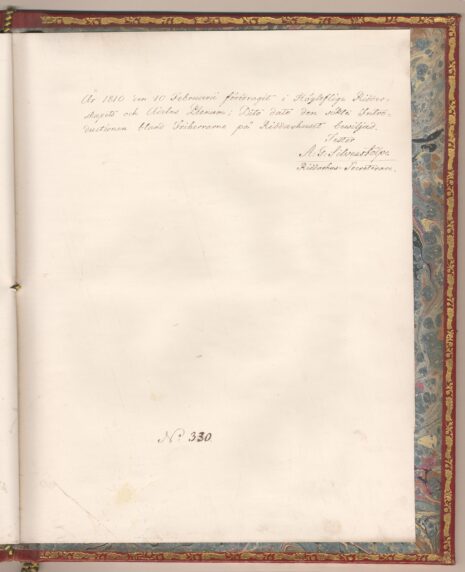 År 1810 den 10 Februarii föredragit i Höglofliga Ridder-
skapets och Adelns Plenum; Dito dato den sökta Intro-
ductionen bland Friherrarne på Riddarhuset bewiljad.
Testor
A. G. Silverstolpe
Riddarhus-Secreterare.
No 330.